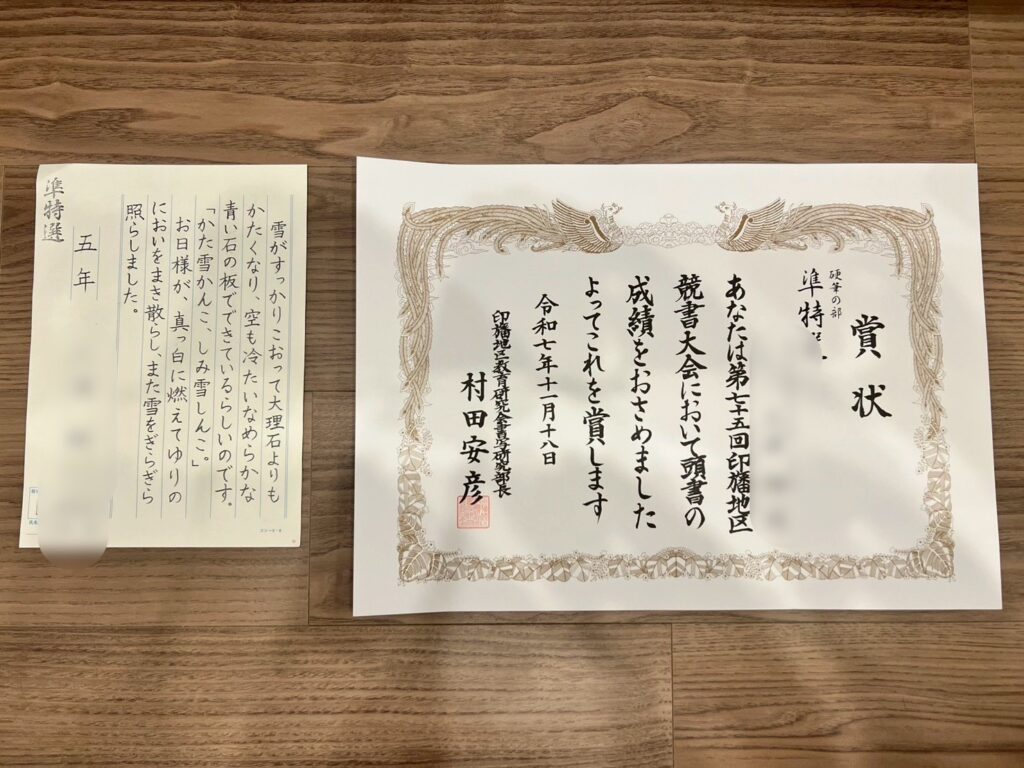 準特選
雪がすっかりこおって大理石よりも
かたくなり、空も冷たいなめらかな
青い石の板でできているらしいのです。
「かた雪かんこ、しみ雪しんこ。」
お日様が、真っ白に燃えてゆりの
においをまき散らし、また雪をぎらぎら
照らしました。
五年
賞状
硬筆の部
準特
あなたは第七十五回印旛地区
競書大会において頭書の
成績をおさめました
よってこれを賞します
令和七年十一月十八日
印旛地区教育研究会書写研究部長
村田安彦